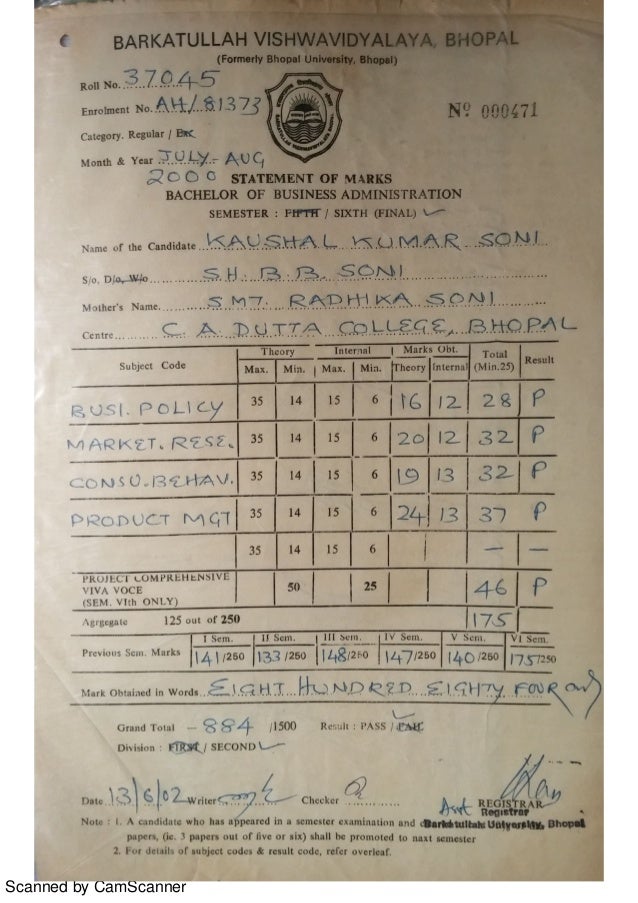 BARKATULLAH VISHWAVIDYALAYA, BHOPAL
(Formerly Bhopal University, Bhopal)
Roll No. 37045
Enrolment No. AH/81373
Nº 000471
Category. Regular / Ex.
Month & Year JULY-AUG
2000 STATEMENT OF MARKS
BACHELOR OF BUSINESS ADMINISTRATION
SEMESTER : FIFTH / SIXTH (FINAL) ✓
Name of the Candidate KAUSHAL KUMAR SONI
S/o. D/o, W/o SH. B.B. SONI
Mother's Name SMT. RADHIKA SONI
Centre C. A DUTTA COLLEGE, BHOPAL
Subject Code Theory Internal Marks Obt. Total (Min.25) Result
Max. Min. Max. Min. Theory Internal
BUSI. POLICY 35 14 15 6 16 12 28 P
MARKET. RESE. 35 14 15 6 20 12 32 P
CONSU. BEHAV. 35 14 15 6 19 13 32 P
PRODUCT MGT 35 14 15 6 24 13 37 P
35 14 15 6 — —
PROJECT COMPREHENSIVE
VIVA VOCE 50 25 46 P
(SEM. VIth ONLY)
Agrgegate 125 out of 250 175
I Sem. II Sem. III Sem. IV Sem. V Sem. VI Sem.
Previous Sem. Marks 141/250 133/250 148/250 147/250 140/250 175/250
Mark Obtained in Words EIGHT HUNDRED EIGHTY FOUR only
Grand Total - 884 /1500 Result : PASS / FAIL
Division : FIRST / SECOND ✓
Date 13/6/02 Writer Checker
Asst REGISTRAR
Registrar
Barkatullah University, Bhopal
Note : 1. A candidate who has appeared in a semester examination and
papers, (ie. 3 papers out of five or six) shall be promoted to naxt semester
2. For details of subject codes & result code, refer overleaf.
Scanned by CamScanner